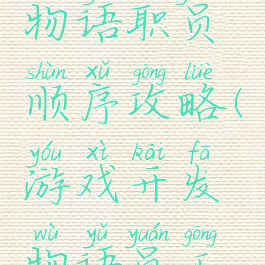 物语职员
shùn xǔ gōng lüè
顺序攻略(
yóu xì kāi fā
游戏开发
wù yǔ yuán gōng
物语员工